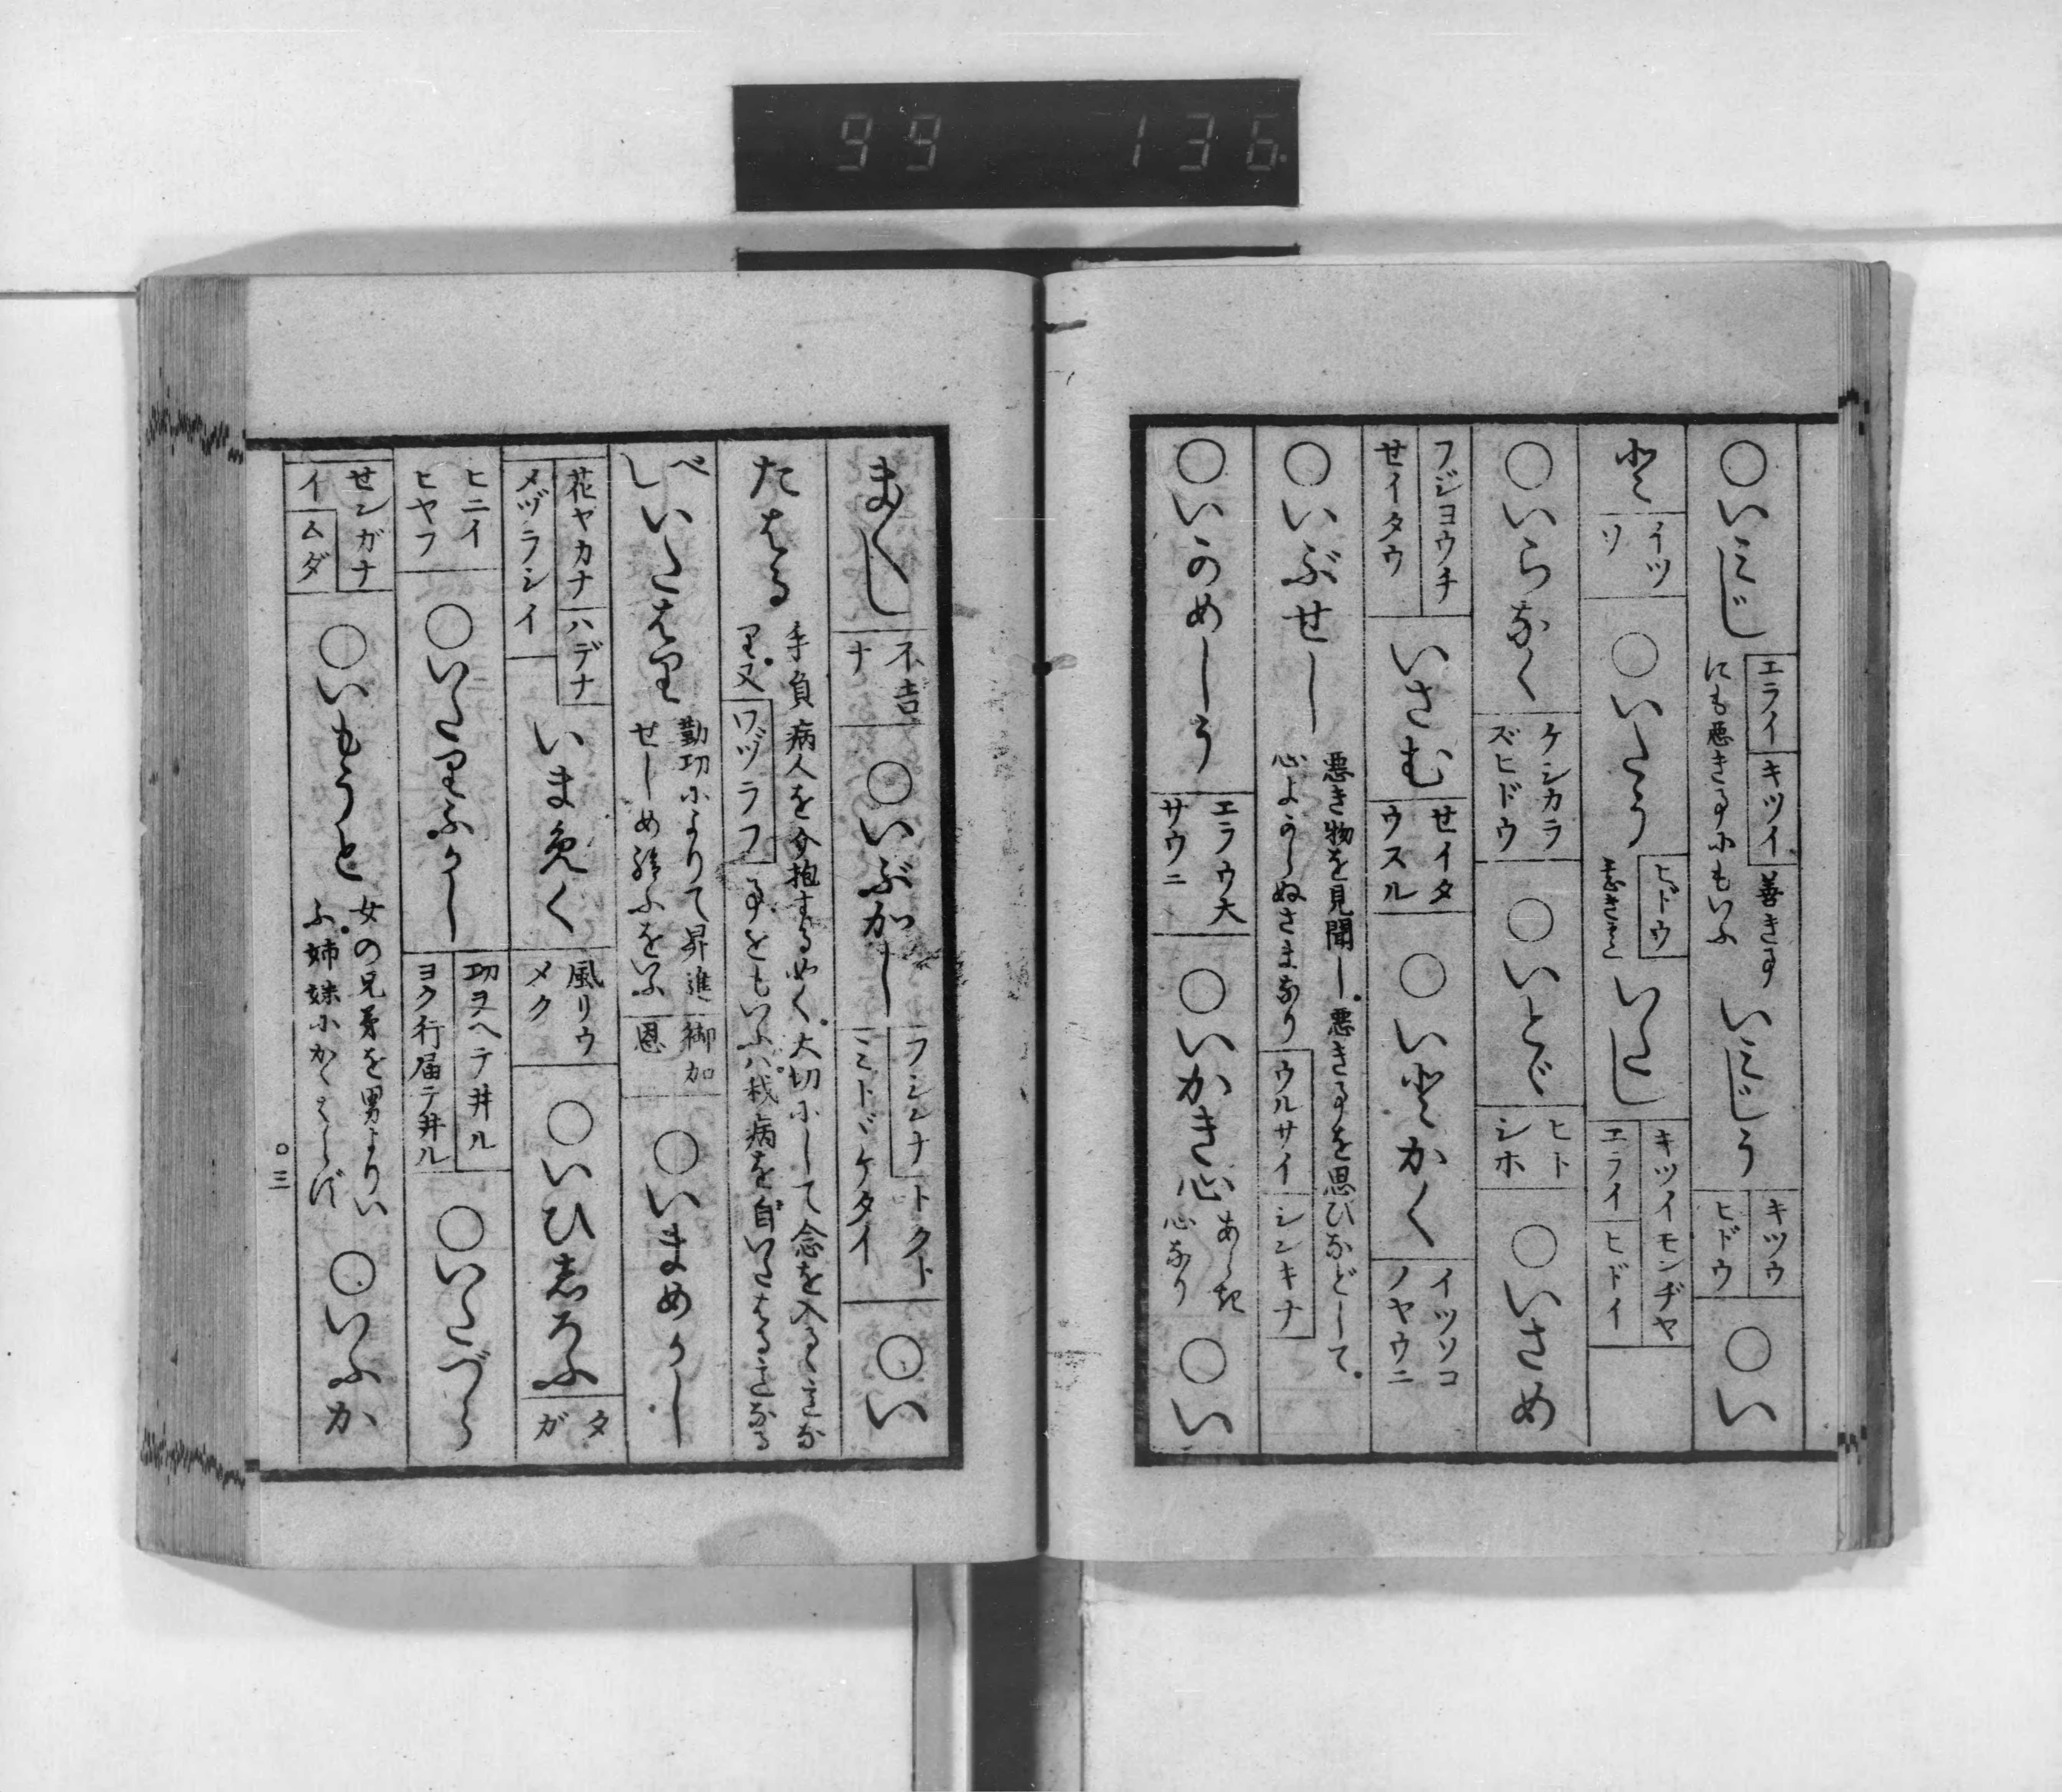 99 136
○いみじ エライ キツイ 善き事にも悪き事にもいふ いみじう キツウ ヒドウ ○い
とゞ イツソ ○いたう ヒドウ いたし キツイモンヂヤ エライ ヒドイ
○いらなく ケシカラズヒドウ ○いとゞ ヒトシホ ○いさめ
フジヨウチ せイタウ いさむ せイタウスル ○いとかく イツソコノヤウニ
○いぶせし 悪き物を見聞し悪き事を思ひなどして心よからぬさまなり ウルサイ シンキナ
○いかめしう エラウ大サウニ ○いかき心 あらき心なり ○い
まゝし 不吉ナ ○いぶかし フシンナ トクトミトヾケタイ ○い
たはる 手負病人を介抱する如く大切にして念を入るゝ なり又 ワヅラフ 事をもいふハ我病を自いたはる なる
べし いたはり 勤功によりて昇進せしめ給ふをいふ 御加恩 ○いまめかし
花ヤカナ ハデナ メヅラシイ いまめく 風リウメク ○いひしろふ タガ
ヒニイヒヤフ ○いたりふかし 功ヲヘテ井ル ヨク行届テ井ル ○いたづら
せンガナイ ムダ ○いもうと 女の兄弟を男よりいふ姉妹にかゝはらず ○いふか
○三